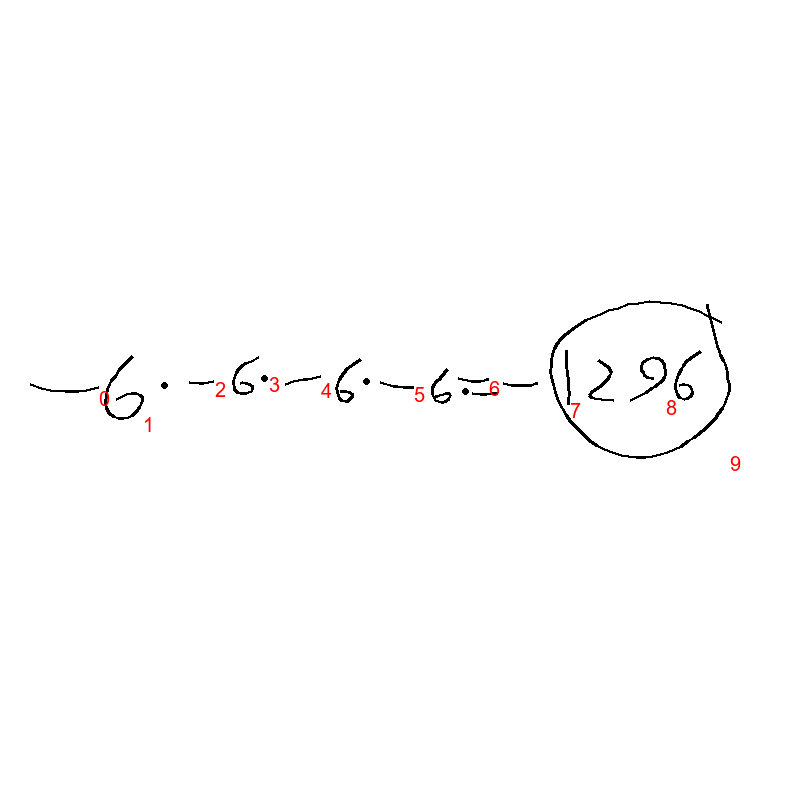 -6 · -6 · -6 · -6 = -1296
0 1 2 3 4 5 6 7 8 9